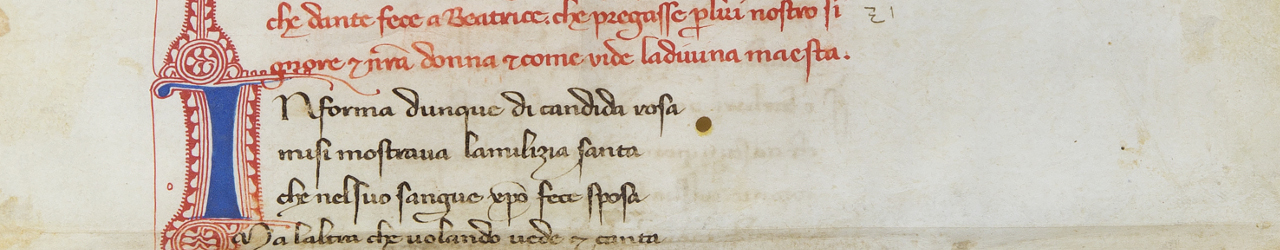 che dante fece a Beatrice. che pregasse p̱ lui nostro si
gnore ⁊ nr̄a donna ⁊ come vide la diuina maesta.
IN forma dunque di candida rosa
misi mostraua lamilizia santa
che nelsuo sangue xp̄o fece sposa
Ma laltra che uolando uede ⁊ canta